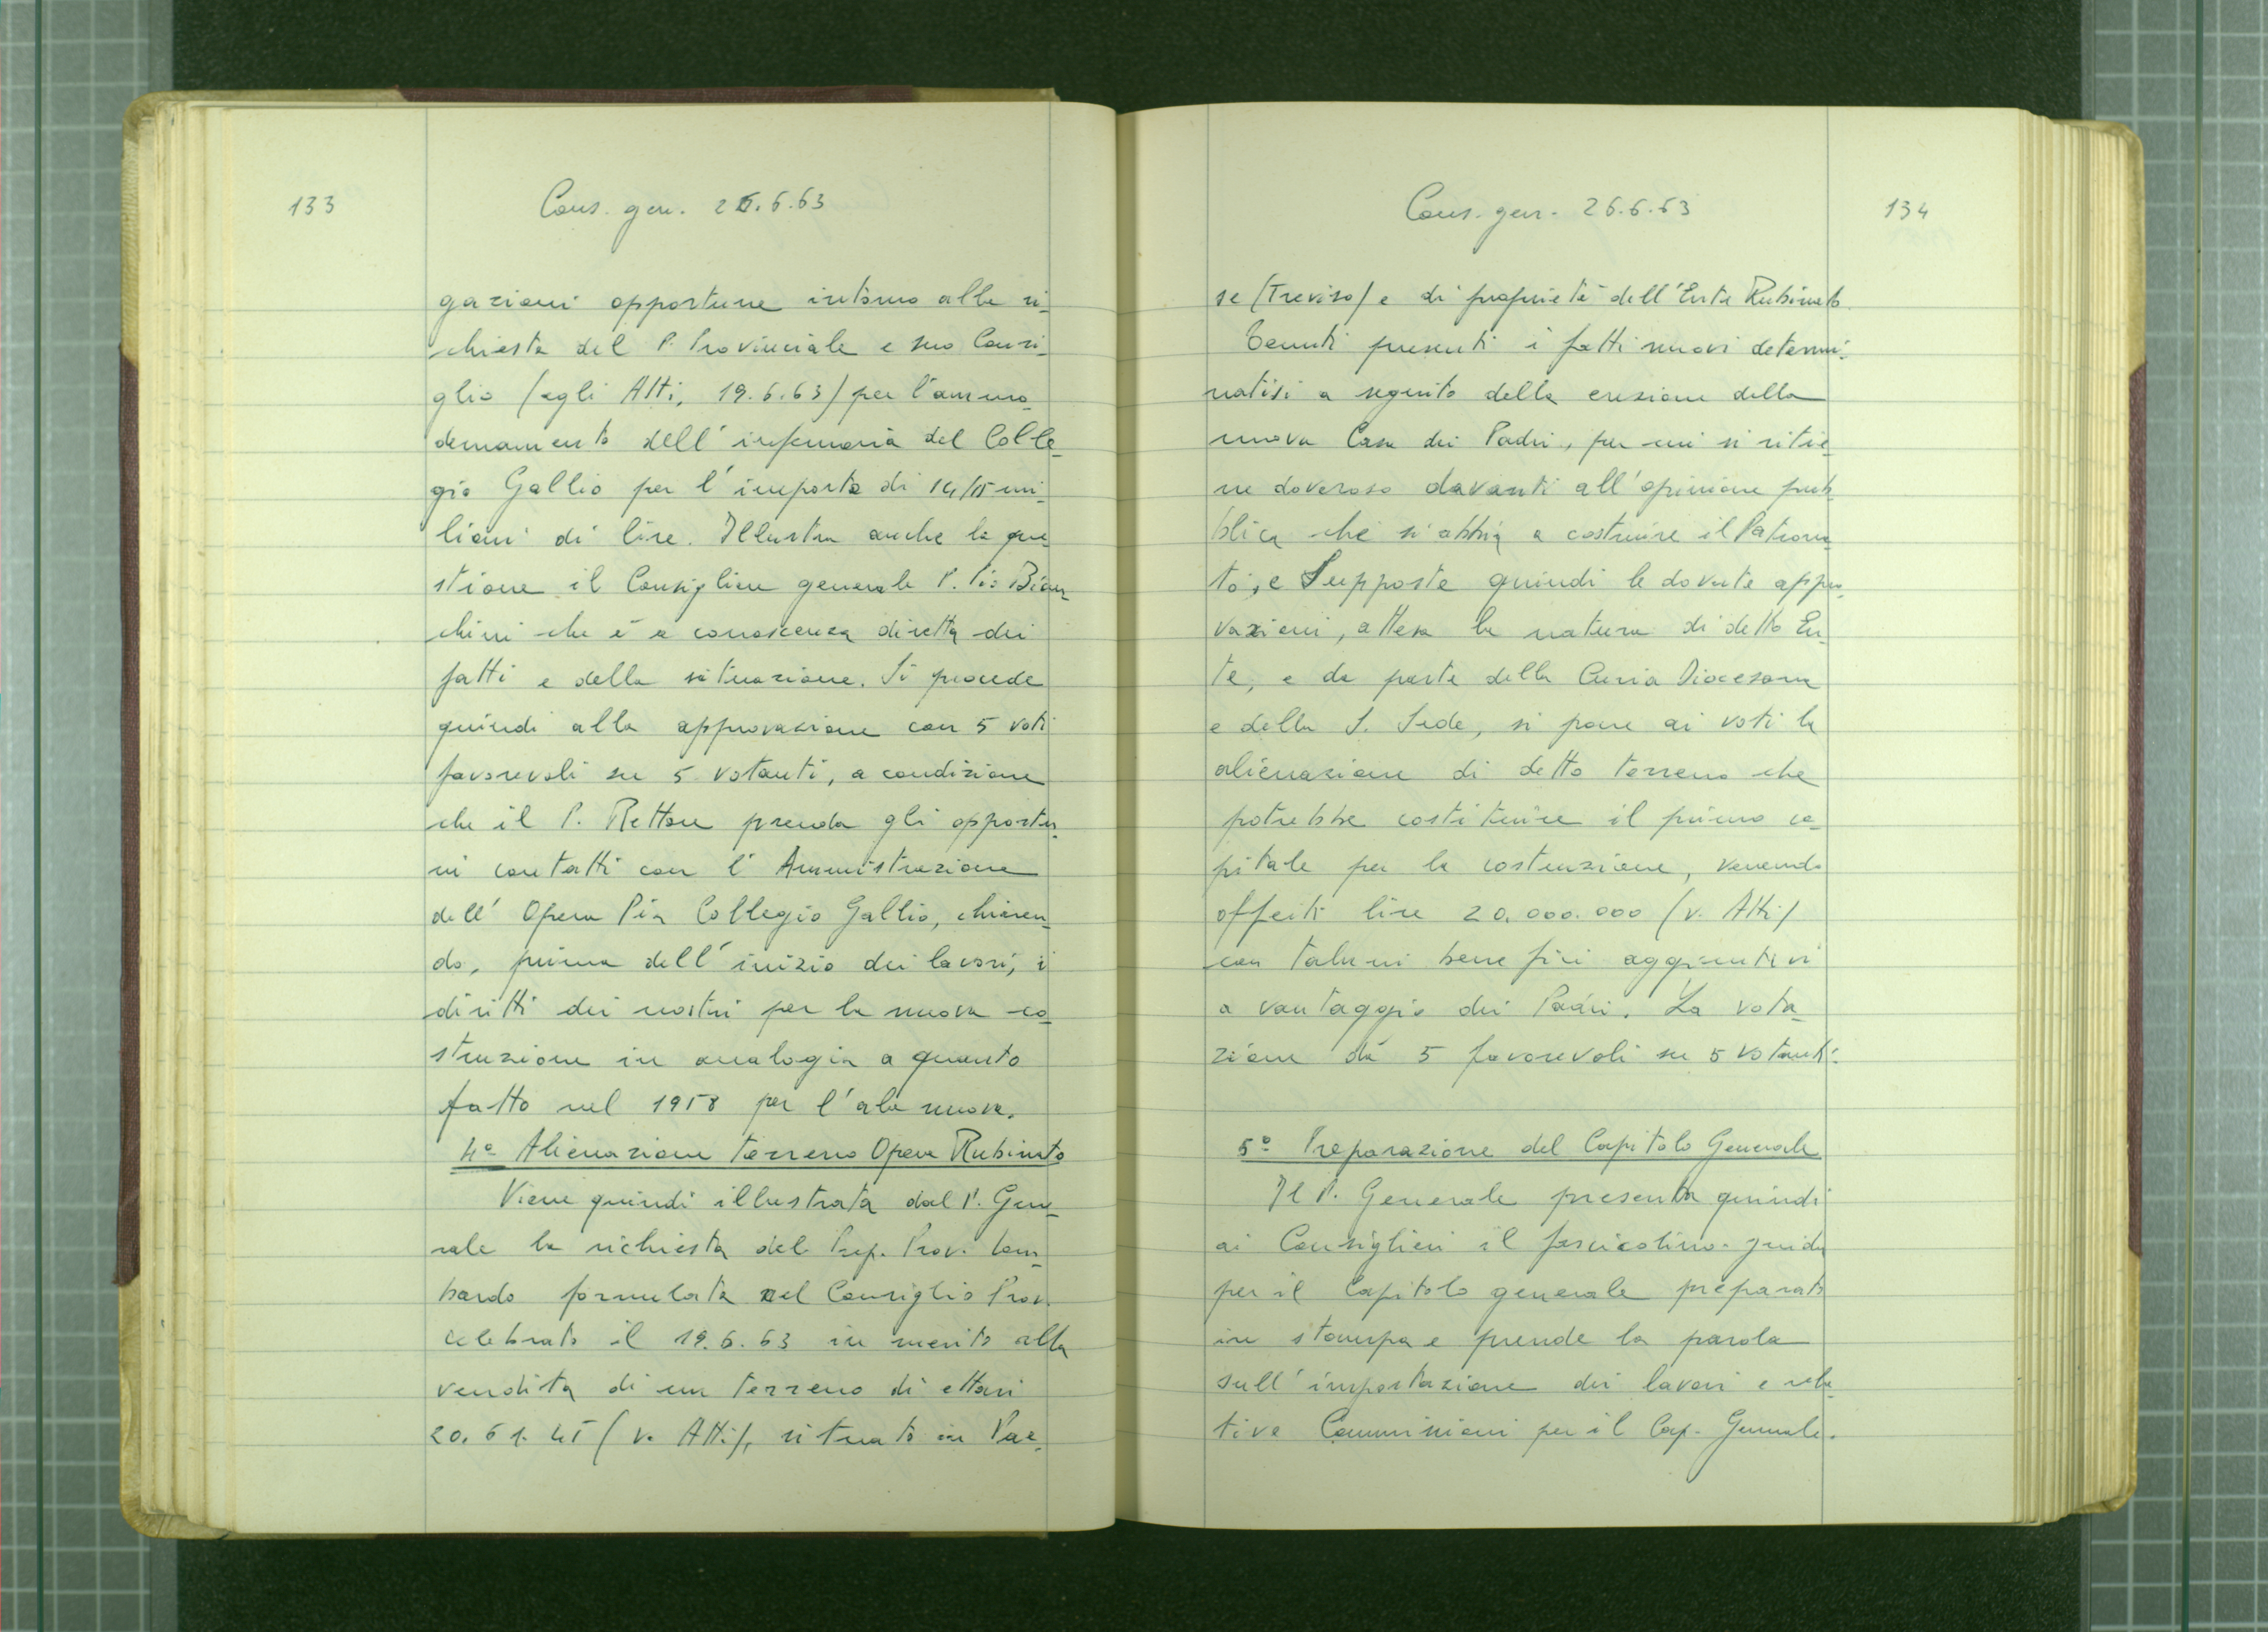 133
Cons. gen. 26.6.63
gazioni opportune intorno alla ri-
chiesta del P. Provinciale e suo Consi-
glio (agli Atti, 19.6.63) per l'ammo-
dernamento dell'infermeria del Colle-
gio Gallio per l'importo di 14/15 mi-
lioni di lire. Illustra anche la que-
stione il Consigliere generale P. Pio Bian-
chini che è a conoscenza diretta dei
fatti e della situazione. Si procede
quindi alla approvazione con 5 voti
favorevoli su 5 votanti, a condizione
che il P. Rettore prenda gli opportu-
ni contatti con l'Amministrazione
dell'Opera Pia Collegio Gallio, chiaren-
do, prima dell'inizio dei lavori, i
diritti dei nostri per la nuova co-
struzione in analogia a quanto
fatto nel 1958 per l'ala nuova.
4° Alienazione terreno Opera Rubinato
Viene quindi illustrata dal P. Gene-
rale la richiesta del Prep. Prov. lom-
bardo formulata nel Consiglio Prov.
celebrato il 19.6.63 in merito alla
vendita di un terreno di ettari
20.61.45 (v. Atti), situato in Pae-
Cons. gen. 26.6.63
134
se (Treviso) e di proprietà dell'Ente Rubinato.
Tenuti presenti i fatti nuovi determi-
natisi a seguito della erezione della
nuova Casa dei Padri, per cui si ritie-
ne doveroso davanti all'opinione pub-
blica che si abbia a costruire il Patrona-
to, e Supposte quindi le dovute appro-
vazioni, attesa la natura di detto En-
te, e da parte della Curia Diocesana
e della S. Sede, si pone ai voti la
alienazione di detto terreno che
potrebbe costituire il primo ca-
pitale per la costruzione, venendo
offerti lire 20.000.000 (v. Atti)
con taluni benefici aggiuntivi
a vantaggio dei Padri. La vota-
zione dà 5 favorevoli su 5 votanti.
5° Preparazione del Capitolo Generale
Il P. Generale presenta quindi
ai Consiglieri il fascicolino-guida
per il Capitolo generale preparato
in stampa e prende la parola
sull'impostazione dei lavori e rela-
tive Commissioni per il Cap. Generale.